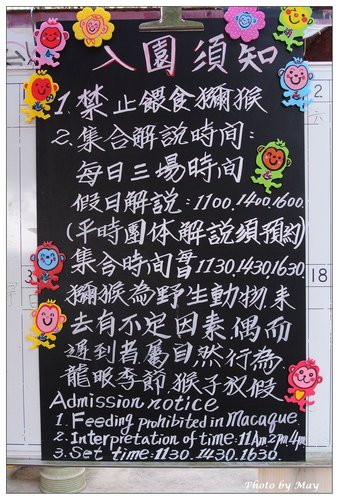 入園須知
1.禁止餵食獼猴
2.集合解說時間:
每日三場時間
假日解說:1100.1400.1600.
(平時團体解說須預約)
集合時間每日1130.1430.1630.
獼猴為野生動物.來
去有不定因素.偶而
遇到者屬自然行為
龍眼季節.猴子放假
Admission notice
1. Feeding prohibited in Macaque
2. Interpretation of time:11Am2pm4pm
3. Set time:1130.1430.1630.
2
六
3
18
Photo by May